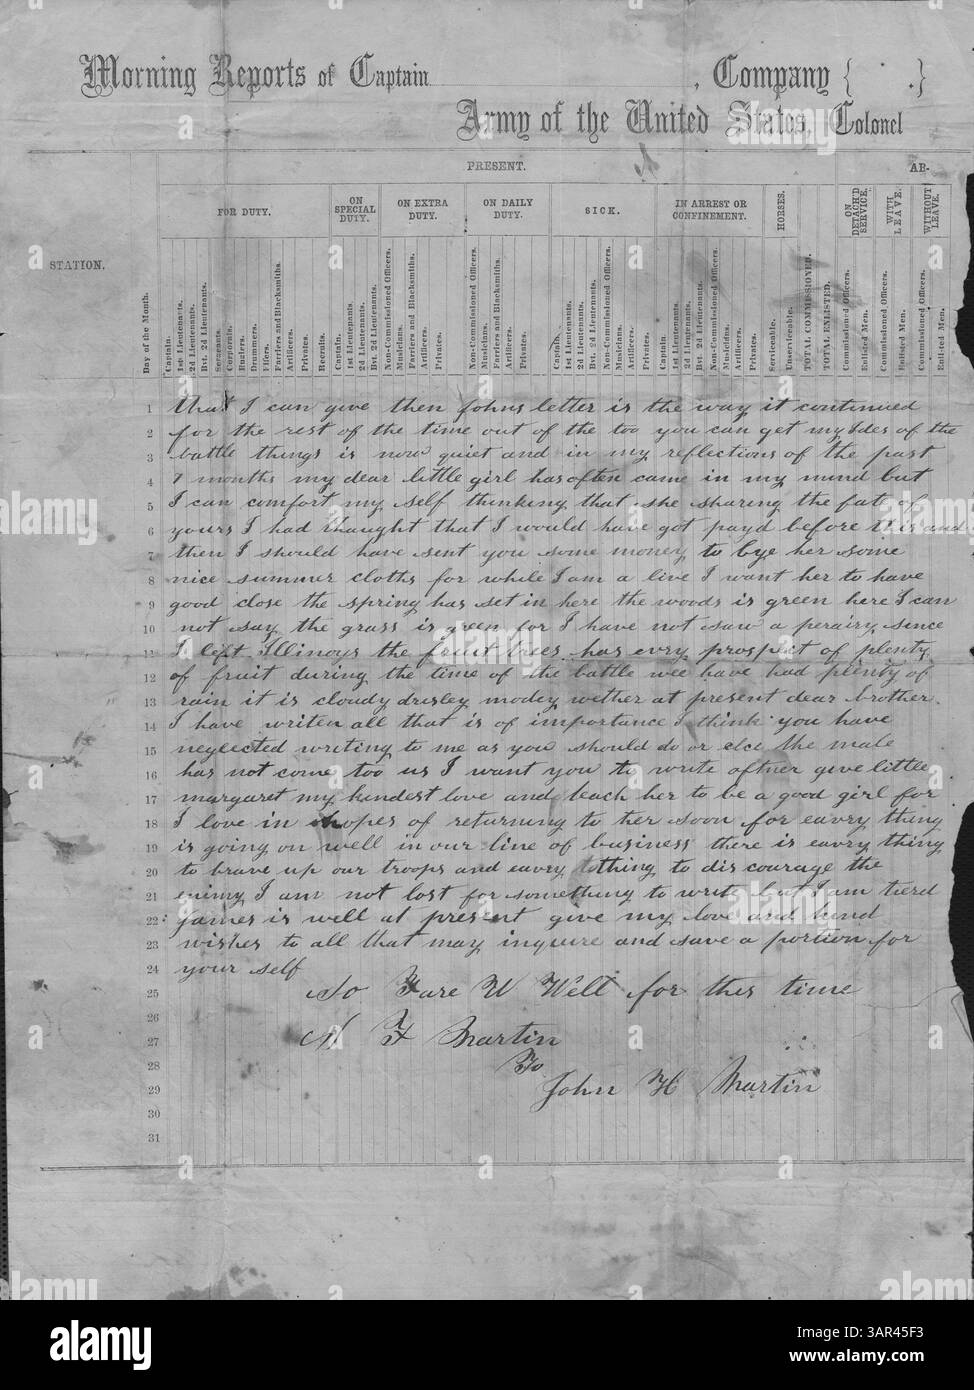 Morning Reports of Captain , Company { . . }
Army of the United States, Colonel
PRESENT.
AB-
STATION.
Day of the Month.
FOR DUTY.
ON SPECIAL DUTY.
ON EXTRA DUTY.
ON DAILY DUTY.
SICK.
IN ARREST OR CONFINEMENT.
HORSES.
ON DETACH'D SERVICE.
WITH LEAVE.
WITHOUT LEAVE.
Captain.
1st Lieutenants.
2d Lieutenants.
Bvt. 2d Lieutenants.
Sergeants.
Corporals.
Buglers.
Drummers.
Fifers.
Farriers and Blacksmiths.
Artificers.
Privates.
Recruits.
Captain.
1st Lieutenants.
2d Lieutenants.
Bvt. 2d Lieutenants.
Non-Commissioned Officers.
Musicians.
Farriers and Blacksmiths.
Artificers.
Privates.
Non-Commissioned Officers.
Musicians.
Farriers and Blacksmiths.
Artificers.
Privates.
Captain.
1st Lieutenants.
2d Lieutenants.
Bvt. 2d Lieutenants.
Non-Commissioned Officers.
Musicians.
Artificers.
Privates.
Captain.
1st Lieutenants.
2d Lieutenants.
Bvt. 2d Lieutenants.
Non-Commissioned Officers.
Musicians.
Artificers.
Privates.
Serviceable.
Unserviceable.
TOTAL COMMISSIONED.
TOTAL ENLISTED.
Commissioned Officers.
Enlisted Men.
Commissioned Officers.
Enlisted Men.
Commissioned Officers.
Enlisted Men.
1 that I can give then Johns letter is the way it continued
2 for the rest of the time out of the too you can get my ides of the
3 battle things is now quiet and in my reflections of the past
4 7 months my dear little girl has often came in my mind but
5 I can comfort my self thinking that she sharing the fate of
6 yours I had thaught that I would have got payd before this and
7 then I should have sent you some money to bye her some
8 nice summer cloths for while I am a live I want her to have
9 good close the spring has set in here the woods is green here I can
10 not say the grass is green for I have not saw a perairy since
11 I left Illinoys the fruit trees has evry prospect of plenty
12 of fruit during the time of the battle wee have had plenty of
13 rain it is cloudy dresley modey wether at present dear brother
14 I have writen all that is of importance I think you have
15 neglected writing to me as you should do or elce the male
16 has not come too us I want you to write oftner give little
17 margaret my kindest love and teach her to be a good girl for
18 I love in hopes of returning to her soon for eavry thing
19 is going on well in our line of business there is eavry thing
20 to brave up our troops and eavry tothing to dis courage the
21 enimy I am not lost for something to write but I am tierd
22 James is well at present give my love and kind
23 wishes to all that may inquire and save a portion for
24 your self
25 So Fare U Well for this time
26
27 A F Martin
28 To
29 John H Martin
30
31
alamy
Image ID: 3AR45F3
www.alamy.com